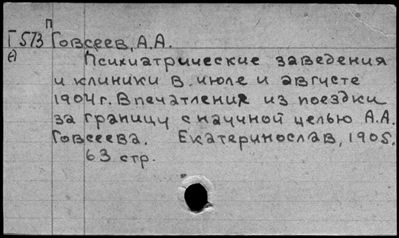 П
Г 573 Говсеев, А.А.
А
Психиатрические заведения
и клиники в июле и августе
1904 г. Впечатления из поездки
за границу с научной целью А.А.
Говсеева. Екатеринослав, 1905.
63 стр.